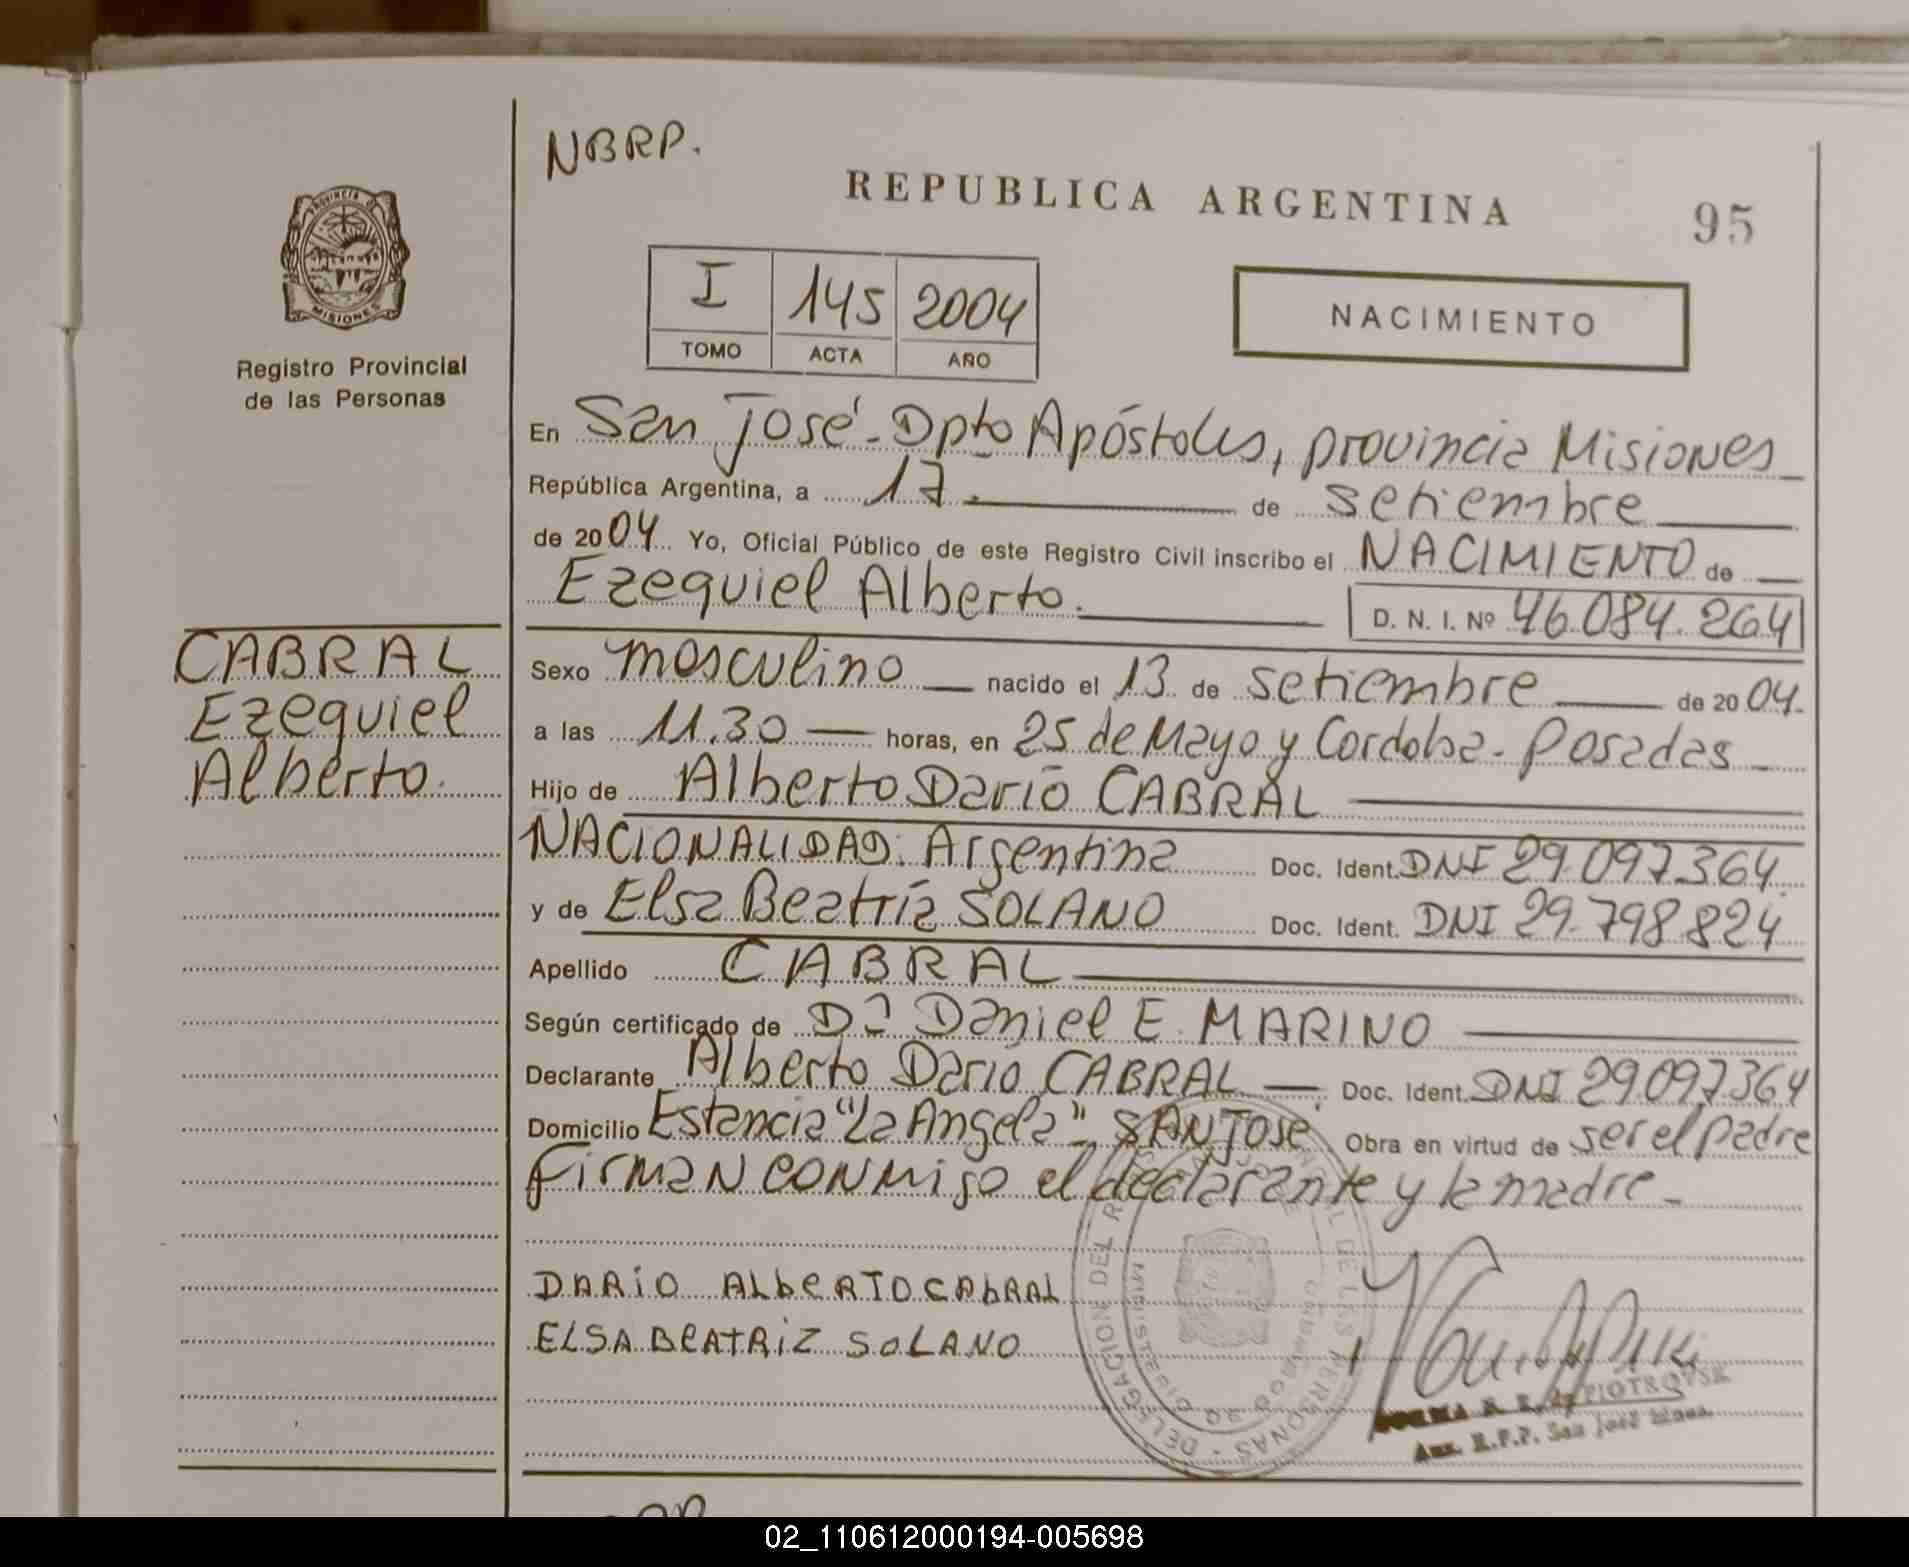 NBRP.
REPUBLICA ARGENTINA
95
PROVINCIA DE
MISIONES
Registro Provincial
de las Personas
I 145 2004
TOMO ACTA AÑO
NACIMIENTO
En San José - Dpto Apóstoles, provincia Misiones
República Argentina, a 17. de setiembre
de 2004 Yo, Oficial Público de este Registro Civil inscribo el NACIMIENTO de
Ezequiel Alberto. D. N. I. Nº 46.084.264
CABRAL
Ezequiel
Alberto.
Sexo masculino nacido el 13 de setiembre de 2004.
a las 11.30 horas, en 25 de Mayo y Cordoba - Posadas
Hijo de Alberto Darío CABRAL
NACIONALIDAD: Argentina Doc. Ident. DNI 29.097.364
y de Elsa Beatríz SOLANO Doc. Ident. DNI 29.798.824
Apellido CABRAL
Según certificado de Dr Daniel E. MARINO
Declarante Alberto Darío CABRAL Doc. Ident. DNI 29.097.364
Domicilio Estancia "La Angela" SAN JOSE Obra en virtud de ser el padre
Firman conmigo el declarante y la madre -
DARIO ALBERTO CABRAL
ELSA BEATRIZ SOLANO
DELEGACION DEL REGISTRO PROVINCIAL DE LAS PERSONAS
NORMA R. E. de PIOTROVSK
Aux. R.P.P. San José Mnes.
02_110612000194-005698